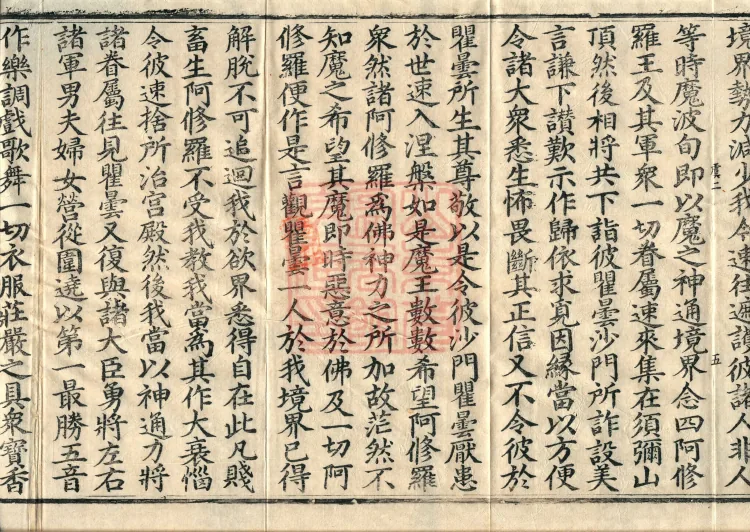 境界勢力減少我今速往遍讃彼諸人非人
震二
五
等時魔波旬即以魔之神通境界念四阿修
羅王及其軍衆一切眷屬速來集在須彌山
頂然後相將共下詣彼瞿曇沙門所詐設美
言謙下讃歎示作歸依求覓因縁當以方便
令諸大衆悉生怖畏斷其正信又不令彼於
瞿曇所生其尊敬以是令彼沙門瞿曇厭患
於世速入涅槃如是魔王數數希望阿修羅
衆然諸阿修羅爲佛神力之所加故茫然不
知魔之希望其魔即時惡意於佛及一切阿
修羅便作是言觀瞿曇一人於我境界已得
解脫不可追迴我於欲界悉得自在此凡賤
畜生阿修羅不受我教我當爲其作大衰惱
令彼速捨所治宮殿然後我當以神通力將
諸眷屬往見瞿曇又復與諸大臣勇將左右
諸軍男夫婦女營從圍遶以第一最勝五音
作樂調戲歌舞一切衣服莊嚴之具衆寶香